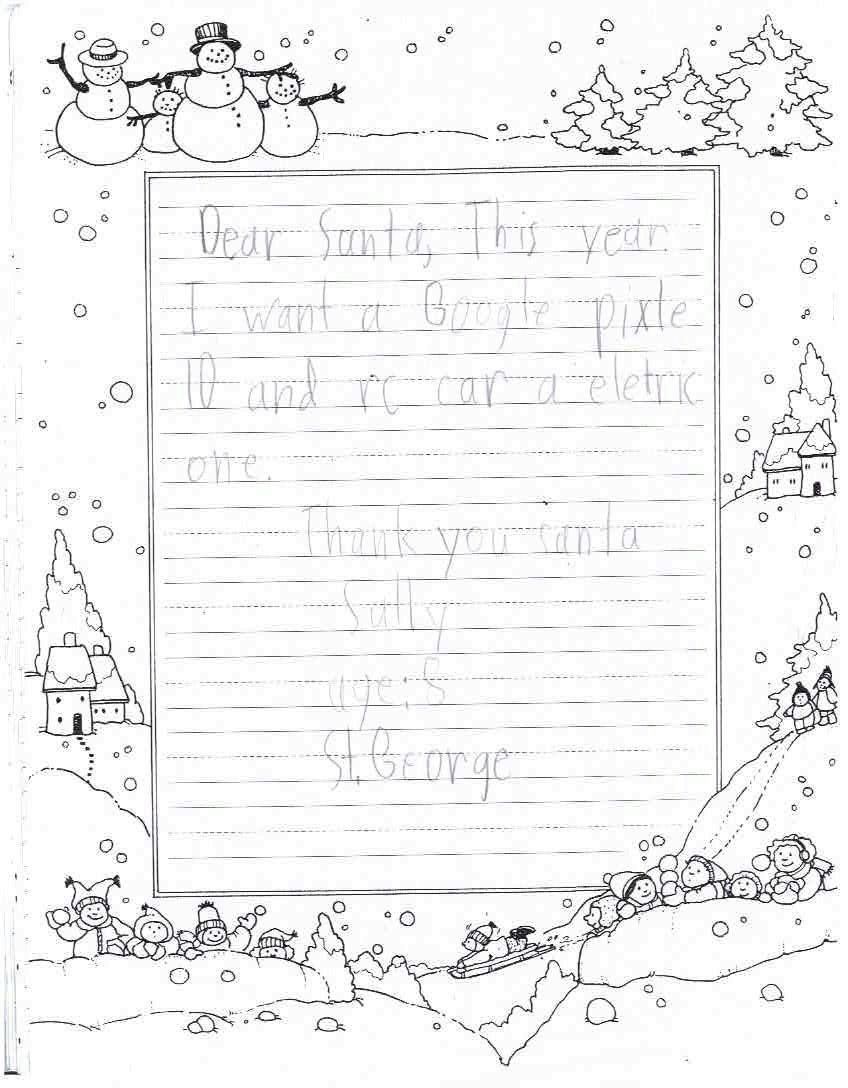 Dear Santa, This year
I want a Google pixle
10 and rc car a eletric
one.
Thank you santa
Sully
age: 8
St. George